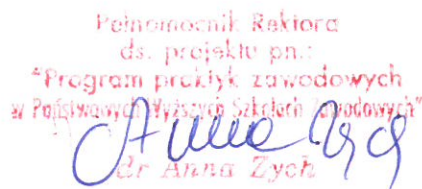 Pełnomocnik Rektora
ds. projektu pn.:
"Program praktyk zawodowych
w Państwowych Wyższych Szkołach Zawodowych"
Anna Zych
dr Anna Zych